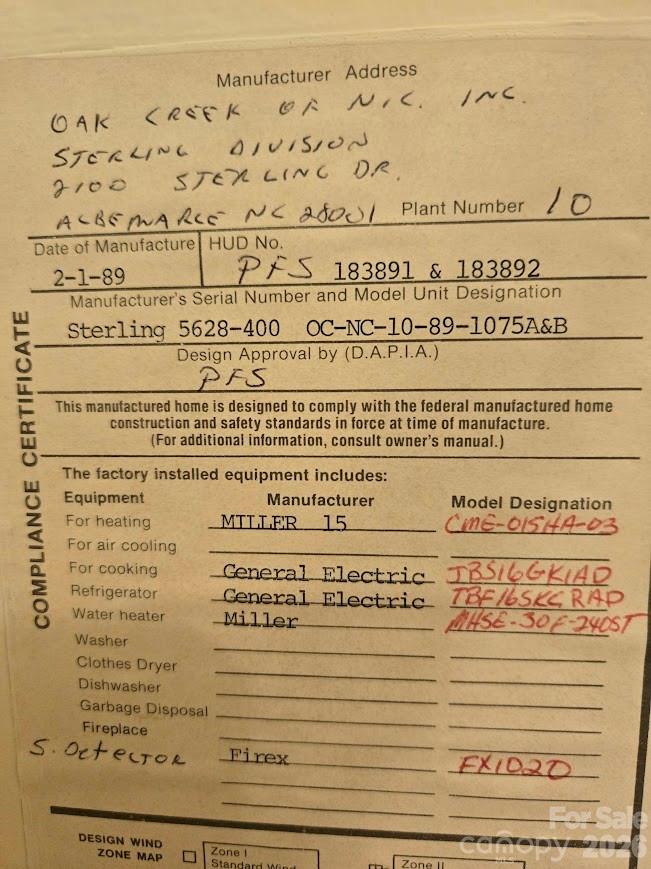 Manufacturer Address
OAK CREEK OF N.C. INC.
STERLING DIVISION
2100 STERLING DR.
ALBEMARLE NC 28001 Plant Number 10
Date of Manufacture HUD No.
2-1-89 PFS 183891 & 183892
Manufacturer's Serial Number and Model Unit Designation
Sterling 5628-400 OC-NC-10-89-1075A&B
Design Approval by (D.A.P.I.A.)
PFS
COMPLIANCE CERTIFICATE
This manufactured home is designed to comply with the federal manufactured home
construction and safety standards in force at time of manufacture.
(For additional information, consult owner's manual.)
The factory installed equipment includes:
Equipment Manufacturer Model Designation
For heating MILLER 15 CME-015HA-03
For air cooling
For cooking General Electric JBS16GK1AD
Refrigerator General Electric TBF16SKC RAD
Water heater Miller MHSE-30F-240ST
Washer
Clothes Dryer
Dishwasher
Garbage Disposal
Fireplace
S. Detector Firex FX1020
DESIGN WIND
ZONE MAP
Zone I
Standard Wind
Zone II
For Sale
canopy 2026